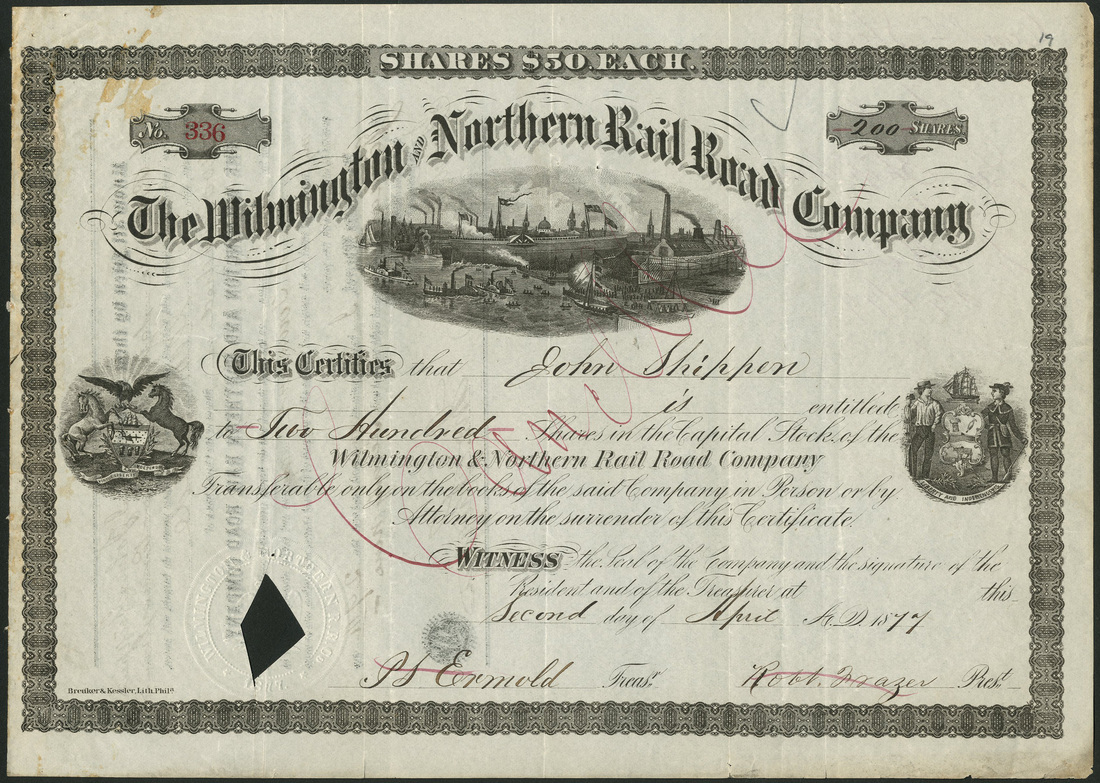 19
SHARES $50. EACH.
No. 336
200 SHARES
The Wilmington AND Northern Rail Road Company
This Certifies that John Shippen
is entitled
to Two Hundred Shares in the Capital Stock of the
Wilmington & Northern Rail Road Company
Transferable only on the books of the said Company in Person or by
Attorney on the surrender of this Certificate.
WITNESS the Seal of the Company and the signature of the
Resident and of the Treasurer at this
Second day of April A.D. 1877
Cancelled
WILMINGTON & NORTHERN R.R. Co.
Ermold Treasr.
Robt. Frazer Prest.
Breuker & Kessler, Lith. Phila.
LIBERTY AND INDEPENDENCE